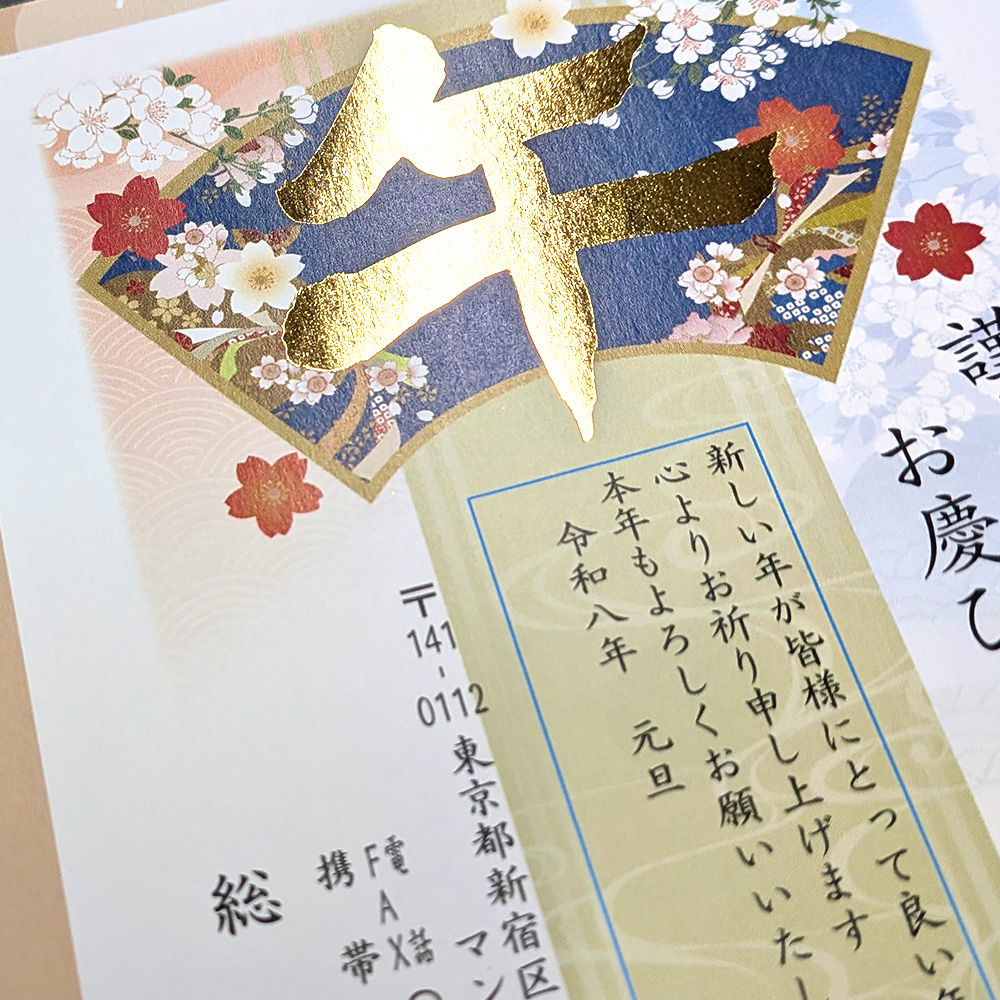 午
謹
お慶び
新しい年が皆様にとって良い年
心よりお祈り申し上げます
本年もよろしくお願いいたし
令和八年 元旦
〒141-0112 東京都新宿区
マン
電話
FAX
携帯
総